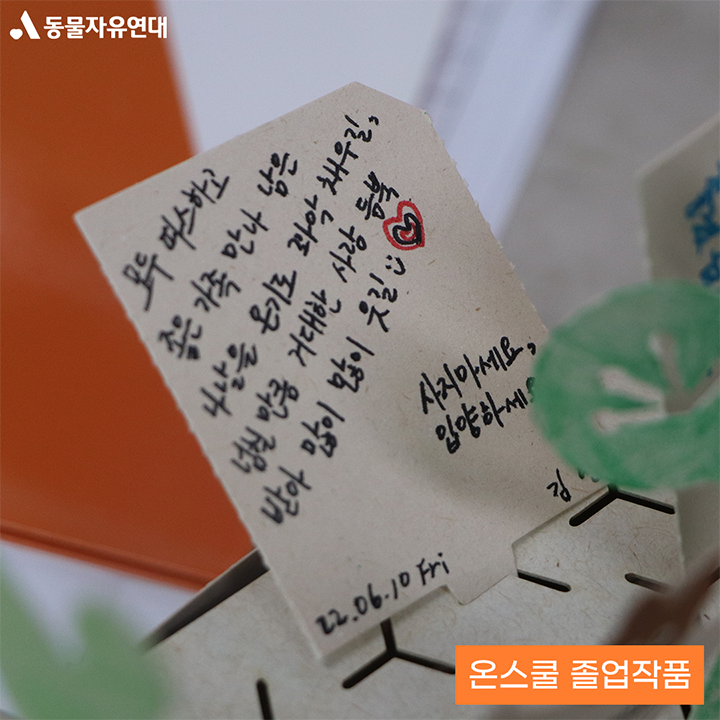 동물자유연대
모두 따스하고
좋은 가족 만나 남은
나날을 온기로 꽈악 채우길,
넘칠 만큼 거대한 사랑 듬뿍
받아 많이 많이 웃길!
사지마세요,
입양하세
22.06.10 Fri
온스쿨 졸업작품